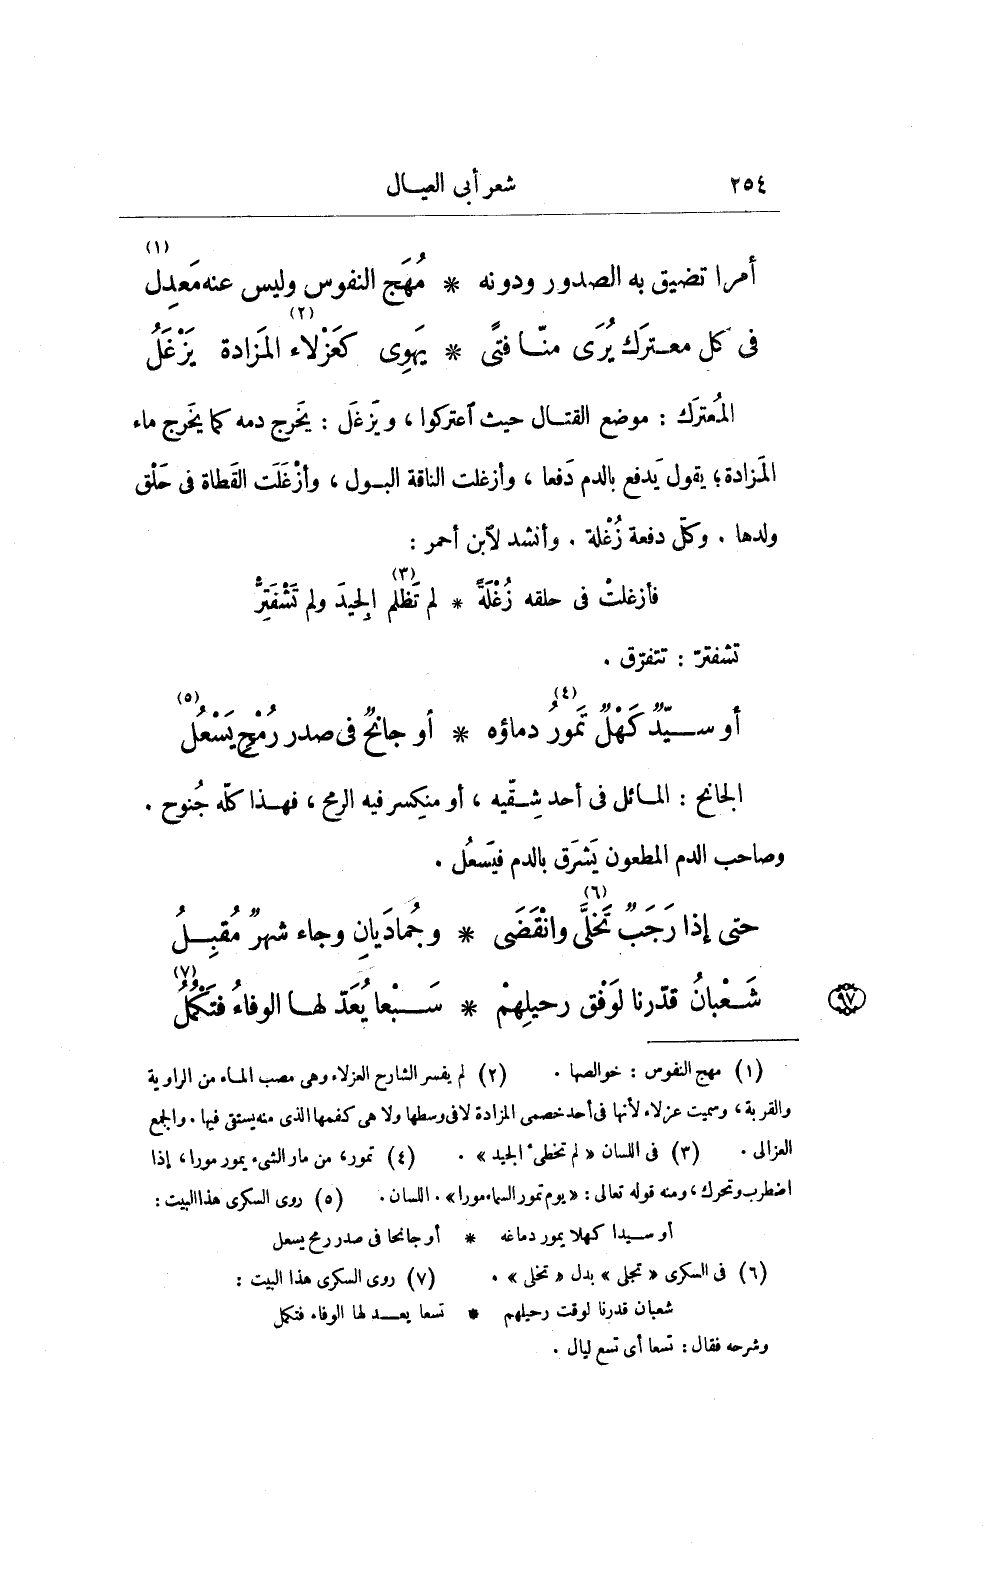 ٢٥٤ شعر أبى العيـال
أمرا تضيق به الصدور ودونه * مُهَج النفوس وليس عنه مَعدِل (١)
فى كل معـترَك يُرَى منّـا فتًى * يَهوِى كَعَزْلاء المَزادة يَزْغَلُ (٢)
المُعترَك : موضع القتـال حيث آعتركوا ، ويَزغَل : يَخرج دمه كما يَخرج ماء
المَزادة؛ يقول يَدفع بالدم دَفعا ، وأزغلت الناقة البـول ، وأزْغَلَت القَطاة فى حَلْق
ولدها . وكلّ دفعة زُغْلة . وأنشد لآبن أحمر :
فأزغلتْ فى حلقه زُغْلَةً * لم تَظلم الِجيدَ ولم تَشْفَتِرّْ (٣)
تشفترّ : تتفرّق .
أو سـيّدٌ كَهْلٌ تَمورُ دماؤه * أو جانحٌ فى صدر رُمْحٍ يَسْعُل (٤) (٥)
الجانح : المـائل فى أحد شِـقّيه ، أو منكِسر فيه الرمح ، فهـذا كلّه جُنوح .
وصاحب الدم المطعون يَشرَق بالدم فيَسعُل .
حتى إذا رَجَبٌ تَخلَّى وانْقَضَى * وجُمادَيانِ وجاء شهرٌ مُقبِـلُ (٦)
شَـعْبانُ قدّرنا لوَفْق رحيلِهمْ * سَـبْعا يُعَدّ لهـا الوفاءُ فتَكْمُلُ (٧)
٩٧
(١) مهج النفوس : خوالصها . (٢) لم يفسر الشارح العزلاء وهى مصب المـاء من الراوية
والقربة ، وسميت عزلاء لأنها فى أحد خصمى المزادة لا فى وسطها ولا هى كفمها الذى منه يستقى فيها . والجمع
العزالى . (٣) فى اللسان « لم تخطئ الجيد » . (٤) تمور، من مار الشىء يمور مورا ، إذا
اضطرب وتحرك ، ومنه قوله تعالى : « يوم تمور السماء مورا » . اللسان . (٥) روى السكرى هذا البيت :
أو سـيدا كهلا يمور دماغه * أو جانحا فى صدر رمح يسعل
(٦) فى السكرى « تجلى » بدل « تخلى » . (٧) روى السكرى هذا البيت :
شعبان قدرنا لوقت رحيلهم * تسعا يعـد لها الوفاء فتكمل
وشرحه فقال : تسعا أى تسع ليال .